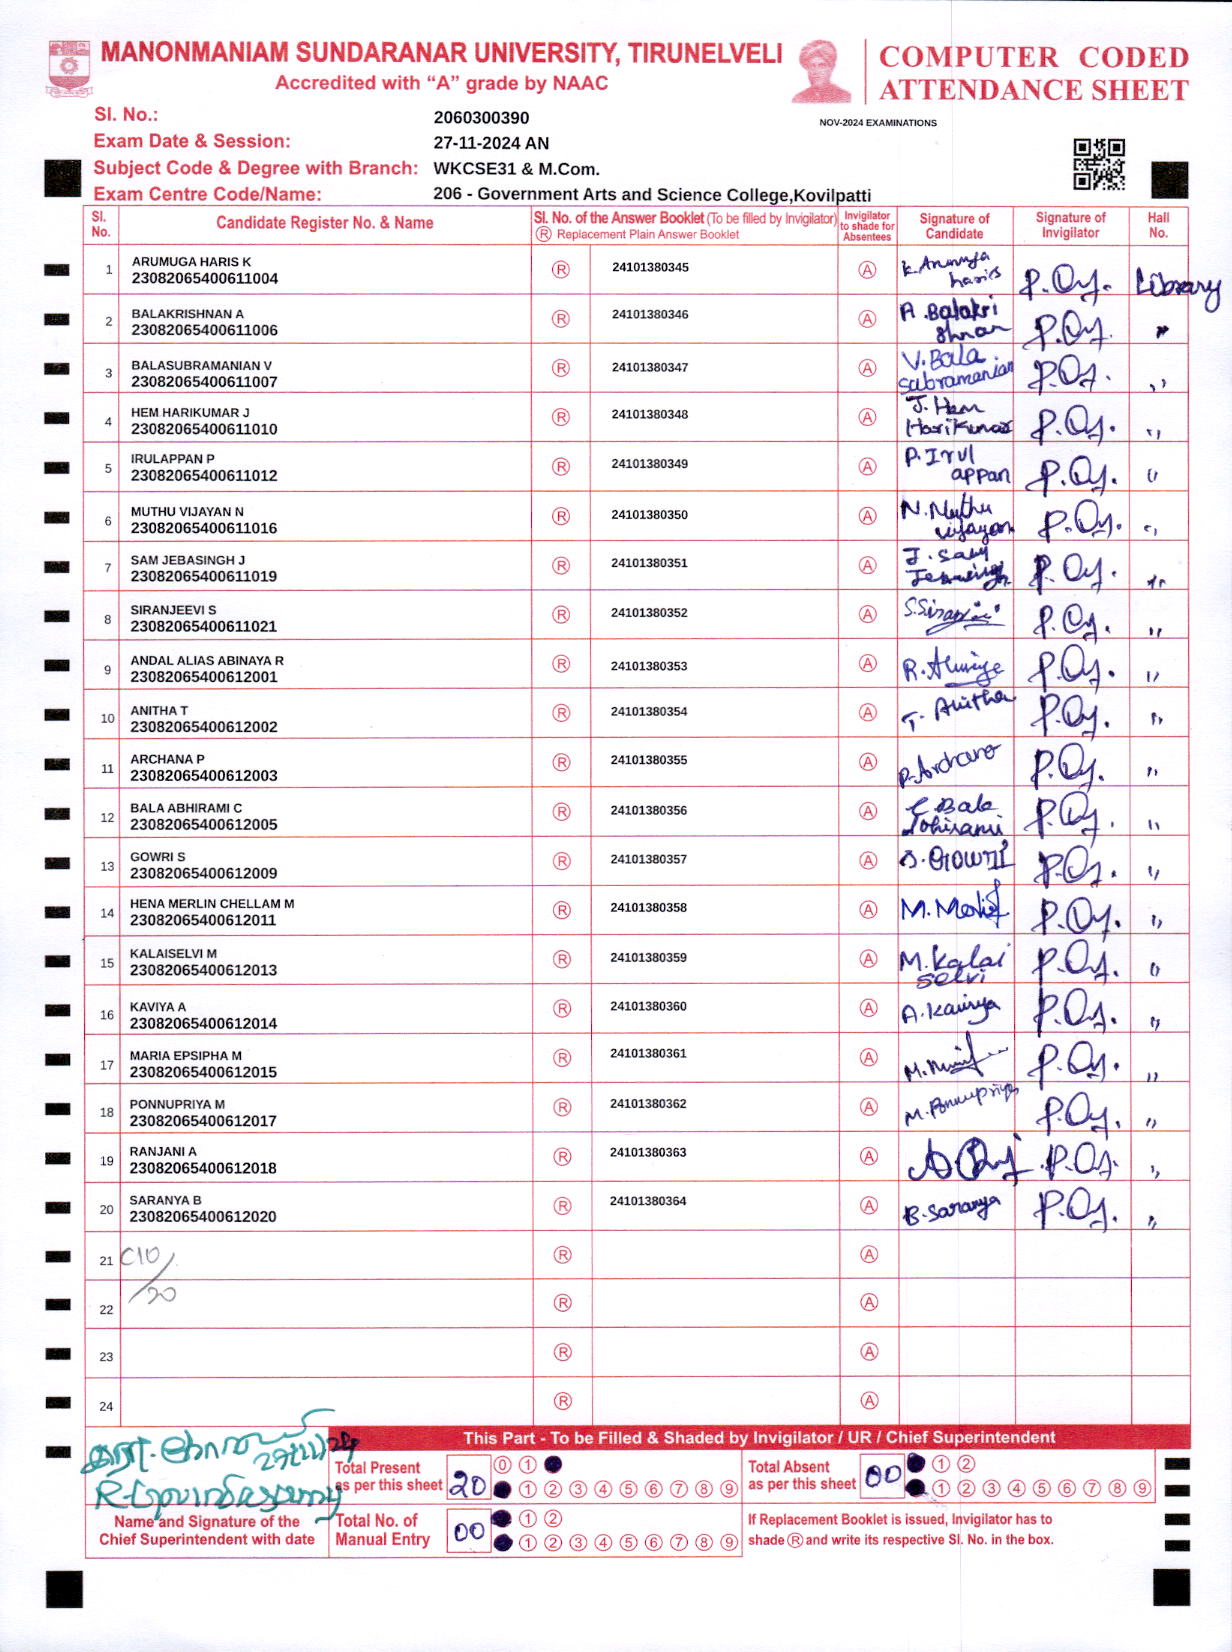 MANONMANIAM SUNDARANAR UNIVERSITY, TIRUNELVELI
Accredited with “A” grade by NAAC
COMPUTER CODED
ATTENDANCE SHEET
NOV-2024 EXAMINATIONS
Sl. No.: 2060300390
Exam Date & Session: 27-11-2024 AN
Subject Code & Degree with Branch: WKCSE31 & M.Com.
Exam Centre Code/Name: 206 - Government Arts and Science College,Kovilpatti
Sl. No. Candidate Register No. & Name Sl. No. of the Answer Booklet (To be filled by Invigilator) Ⓡ Replacement Plain Answer Booklet Invigilator to shade for Absentees Signature of Candidate Signature of Invigilator Hall No.
1 ARUMUGA HARIS K Ⓡ 24101380345 Ⓐ Library
23082065400611004
2 BALAKRISHNAN A Ⓡ 24101380346 Ⓐ A. Balakri shnan "
23082065400611006
3 BALASUBRAMANIAN V Ⓡ 24101380347 Ⓐ V. Bala subramanian "
23082065400611007
4 HEM HARIKUMAR J Ⓡ 24101380348 Ⓐ J. Hem Harikumar "
23082065400611010
5 IRULAPPAN P Ⓡ 24101380349 Ⓐ P. Irul appan "
23082065400611012
6 MUTHU VIJAYAN N Ⓡ 24101380350 Ⓐ N. Muthu vijayan "
23082065400611016
7 SAM JEBASINGH J Ⓡ 24101380351 Ⓐ J. Sam "
23082065400611019
8 SIRANJEEVI S Ⓡ 24101380352 Ⓐ "
23082065400611021
9 ANDAL ALIAS ABINAYA R Ⓡ 24101380353 Ⓐ "
23082065400612001
10 ANITHA T Ⓡ 24101380354 Ⓐ T. Anitha "
23082065400612002
11 ARCHANA P Ⓡ 24101380355 Ⓐ P. Archana "
23082065400612003
12 BALA ABHIRAMI C Ⓡ 24101380356 Ⓐ C Bala "
23082065400612005
13 GOWRI S Ⓡ 24101380357 Ⓐ S. Gowri "
23082065400612009
14 HENA MERLIN CHELLAM M Ⓡ 24101380358 Ⓐ "
23082065400612011
15 KALAISELVI M Ⓡ 24101380359 Ⓐ M. Kalai selvi "
23082065400612013
16 KAVIYA A Ⓡ 24101380360 Ⓐ A. Kaviya "
23082065400612014
17 MARIA EPSIPHA M Ⓡ 24101380361 Ⓐ "
23082065400612015
18 PONNUPRIYA M Ⓡ 24101380362 Ⓐ M. Ponnupriya "
23082065400612017
19 RANJANI A Ⓡ 24101380363 Ⓐ "
23082065400612018
20 SARANYA B Ⓡ 24101380364 Ⓐ B. Saranya "
23082065400612020
21 Ⓡ Ⓐ
22 Ⓡ Ⓐ
23 Ⓡ Ⓐ
24 Ⓡ Ⓐ
This Part - To be Filled & Shaded by Invigilator / UR / Chief Superintendent
Total Present as per this sheet 20
0 1
1 2 3 4 5 6 7 8 9
Total Absent as per this sheet 00
1 2
1 2 3 4 5 6 7 8 9
R. Govindasamy
Name and Signature of the Chief Superintendent with date
Total No. of Manual Entry 00
1 2
1 2 3 4 5 6 7 8 9
If Replacement Booklet is issued, Invigilator has to
shade Ⓡ and write its respective Sl. No. in the box.